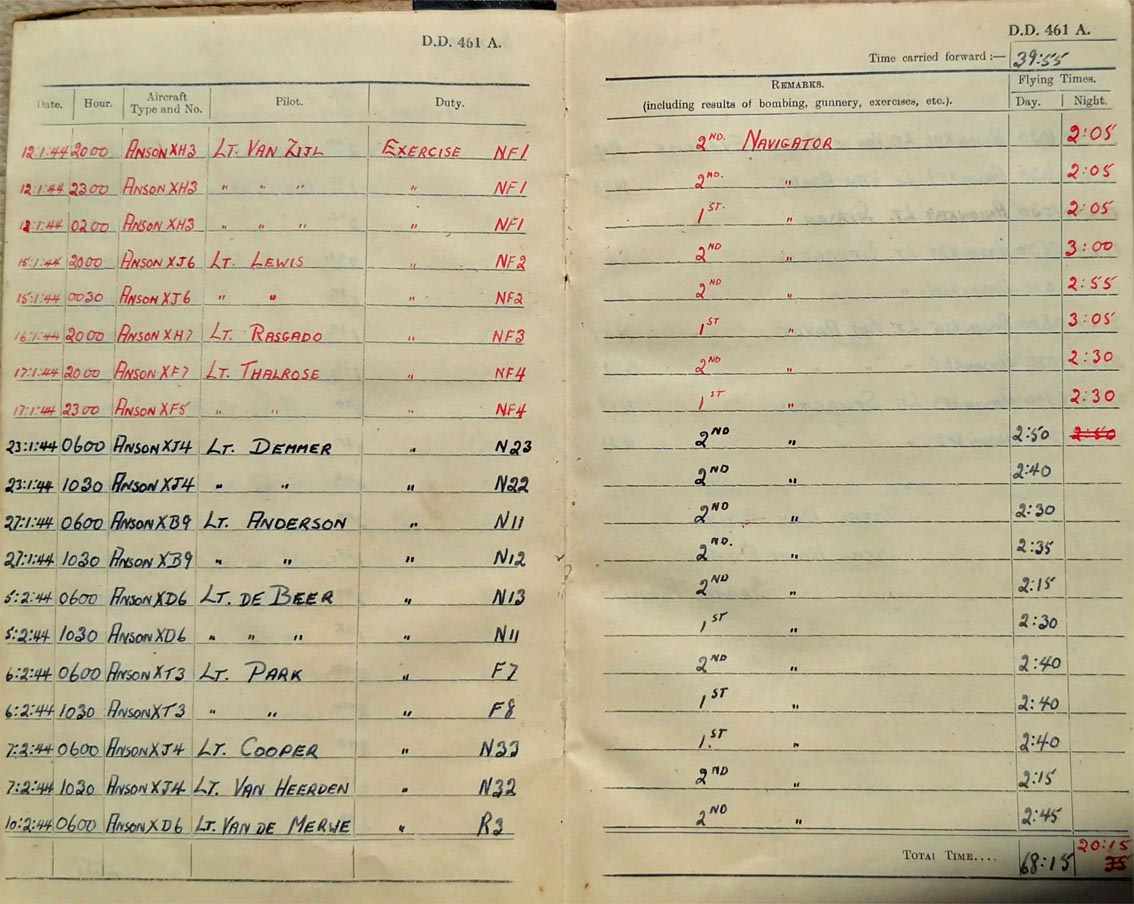 D.D. 461 A.
Date. Hour. Aircraft Type and No. Pilot. Duty.
12:1:44 2000 ANSON XH3 LT. VAN ZIJL EXERCISE NF1
12:1:44 2300 ANSON XH3 " " " " NF1
12:1:44 0200 ANSON XH3 " " " " NF1
15:1:44 2000 ANSON XJ6 LT. LEWIS " NF2
15:1:44 0030 ANSON XJ6 " " " NF2
16:1:44 2000 ANSON XH7 LT. RASGADO " NF3
17:1:44 2000 ANSON XF7 LT. THALROSE " NF4
17:1:44 2300 ANSON XF5 " " " NF4
23:1:44 0600 ANSON XJ4 LT. DEMMER " N23
23:1:44 1030 ANSON XJ4 " " " N22
27:1:44 0600 ANSON XB9 LT. ANDERSON " N11
27:1:44 1030 ANSON XB9 " " " N12
5:2:44 0600 ANSON XD6 LT. DE BEER " N13
5:2:44 1030 ANSON XD6 " " " " N11
6:2:44 0600 ANSON XT3 LT. PARK " F7
6:2:44 1030 ANSON XT3 " " " F8
7:2:44 0600 ANSON XJ4 LT. COOPER " N33
7:2:44 1030 ANSON XJ4 LT. VAN HEERDEN " N32
10:2:44 0600 ANSON XD6 LT. VAN DE MERWE " R3
D.D. 461 A.
Time carried forward:— 39:55
REMARKS. Flying Times.
(including results of bombing, gunnery, exercises, etc.). Day. Night.
2ND. NAVIGATOR 2:05
2ND. " 2:05
1ST. " 2:05
2ND " 3:00
2ND " 2:55
1ST " 3:05
2ND " 2:30
1ST " 2:30
2ND " 2:50 2:50
2ND " 2:40
2ND " 2:30
2ND. " 2:35
2ND " 2:15
1ST " 2:30
2ND " 2:40
1ST " 2:40
1ST. " 2:40
2ND " 2:15
2ND " 2:45
20:15
TOTAL TIME.... 68:15 35